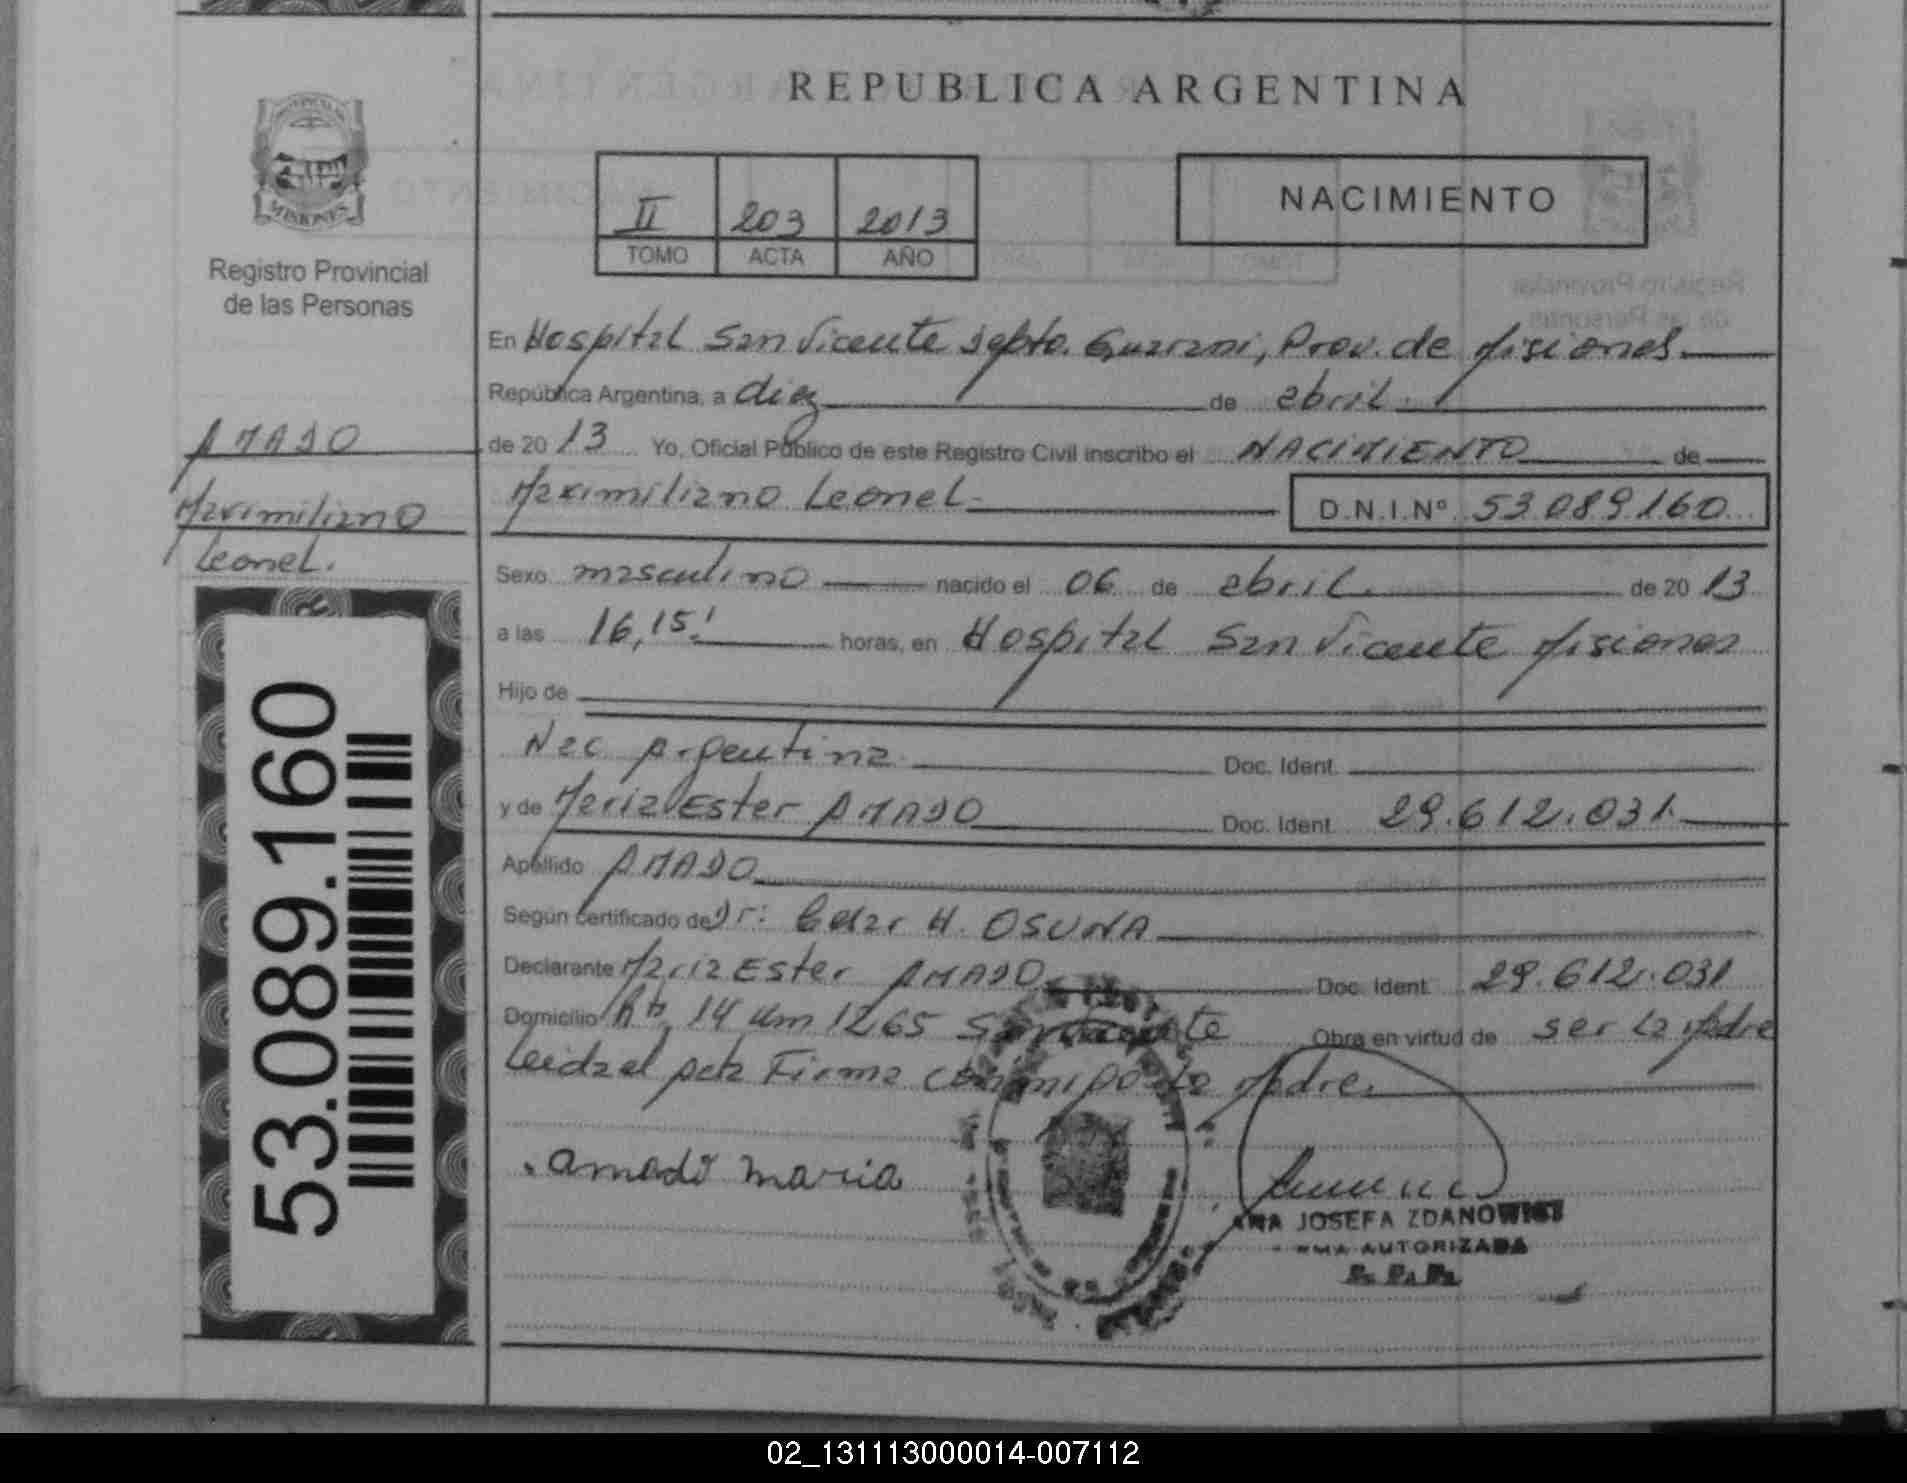 REPUBLICA ARGENTINA
PROVINCIA DE
MISIONES
Registro Provincial
de las Personas
II 203 2013
TOMO ACTA AÑO
NACIMIENTO
En Hospital San Vicente Depto. Guarani, Prov. de Misiones
República Argentina, a diez de abril
de 20 13 Yo, Oficial Público de este Registro Civil inscribo el NACIMIENTO de
Maximiliano Leonel
D.N.I.Nº 53.089.160
AMADO
Maximiliano
Leonel.
Sexo masculino nacido el 06 de abril de 20 13
a las 16,15' horas, en Hospital San Vicente Misiones
Hijo de
Nac Argentina Doc. Ident.
y de Maria Ester AMADO Doc. Ident. 29.612.031
Apellido AMADO
Según certificado de Dr: H. OSUNA
Declarante Maria Ester AMADO Doc. Ident. 29.612.031
Domicilio 14 Km 1265 San Vicente Obra en virtud de ser la Madre
Leida el acta Firma madre.
Amado Maria
ANA JOSEFA ZDANOWICZ
FIRMA AUTORIZADA
R. P. P.
53.089.160
02_131113000014-007112